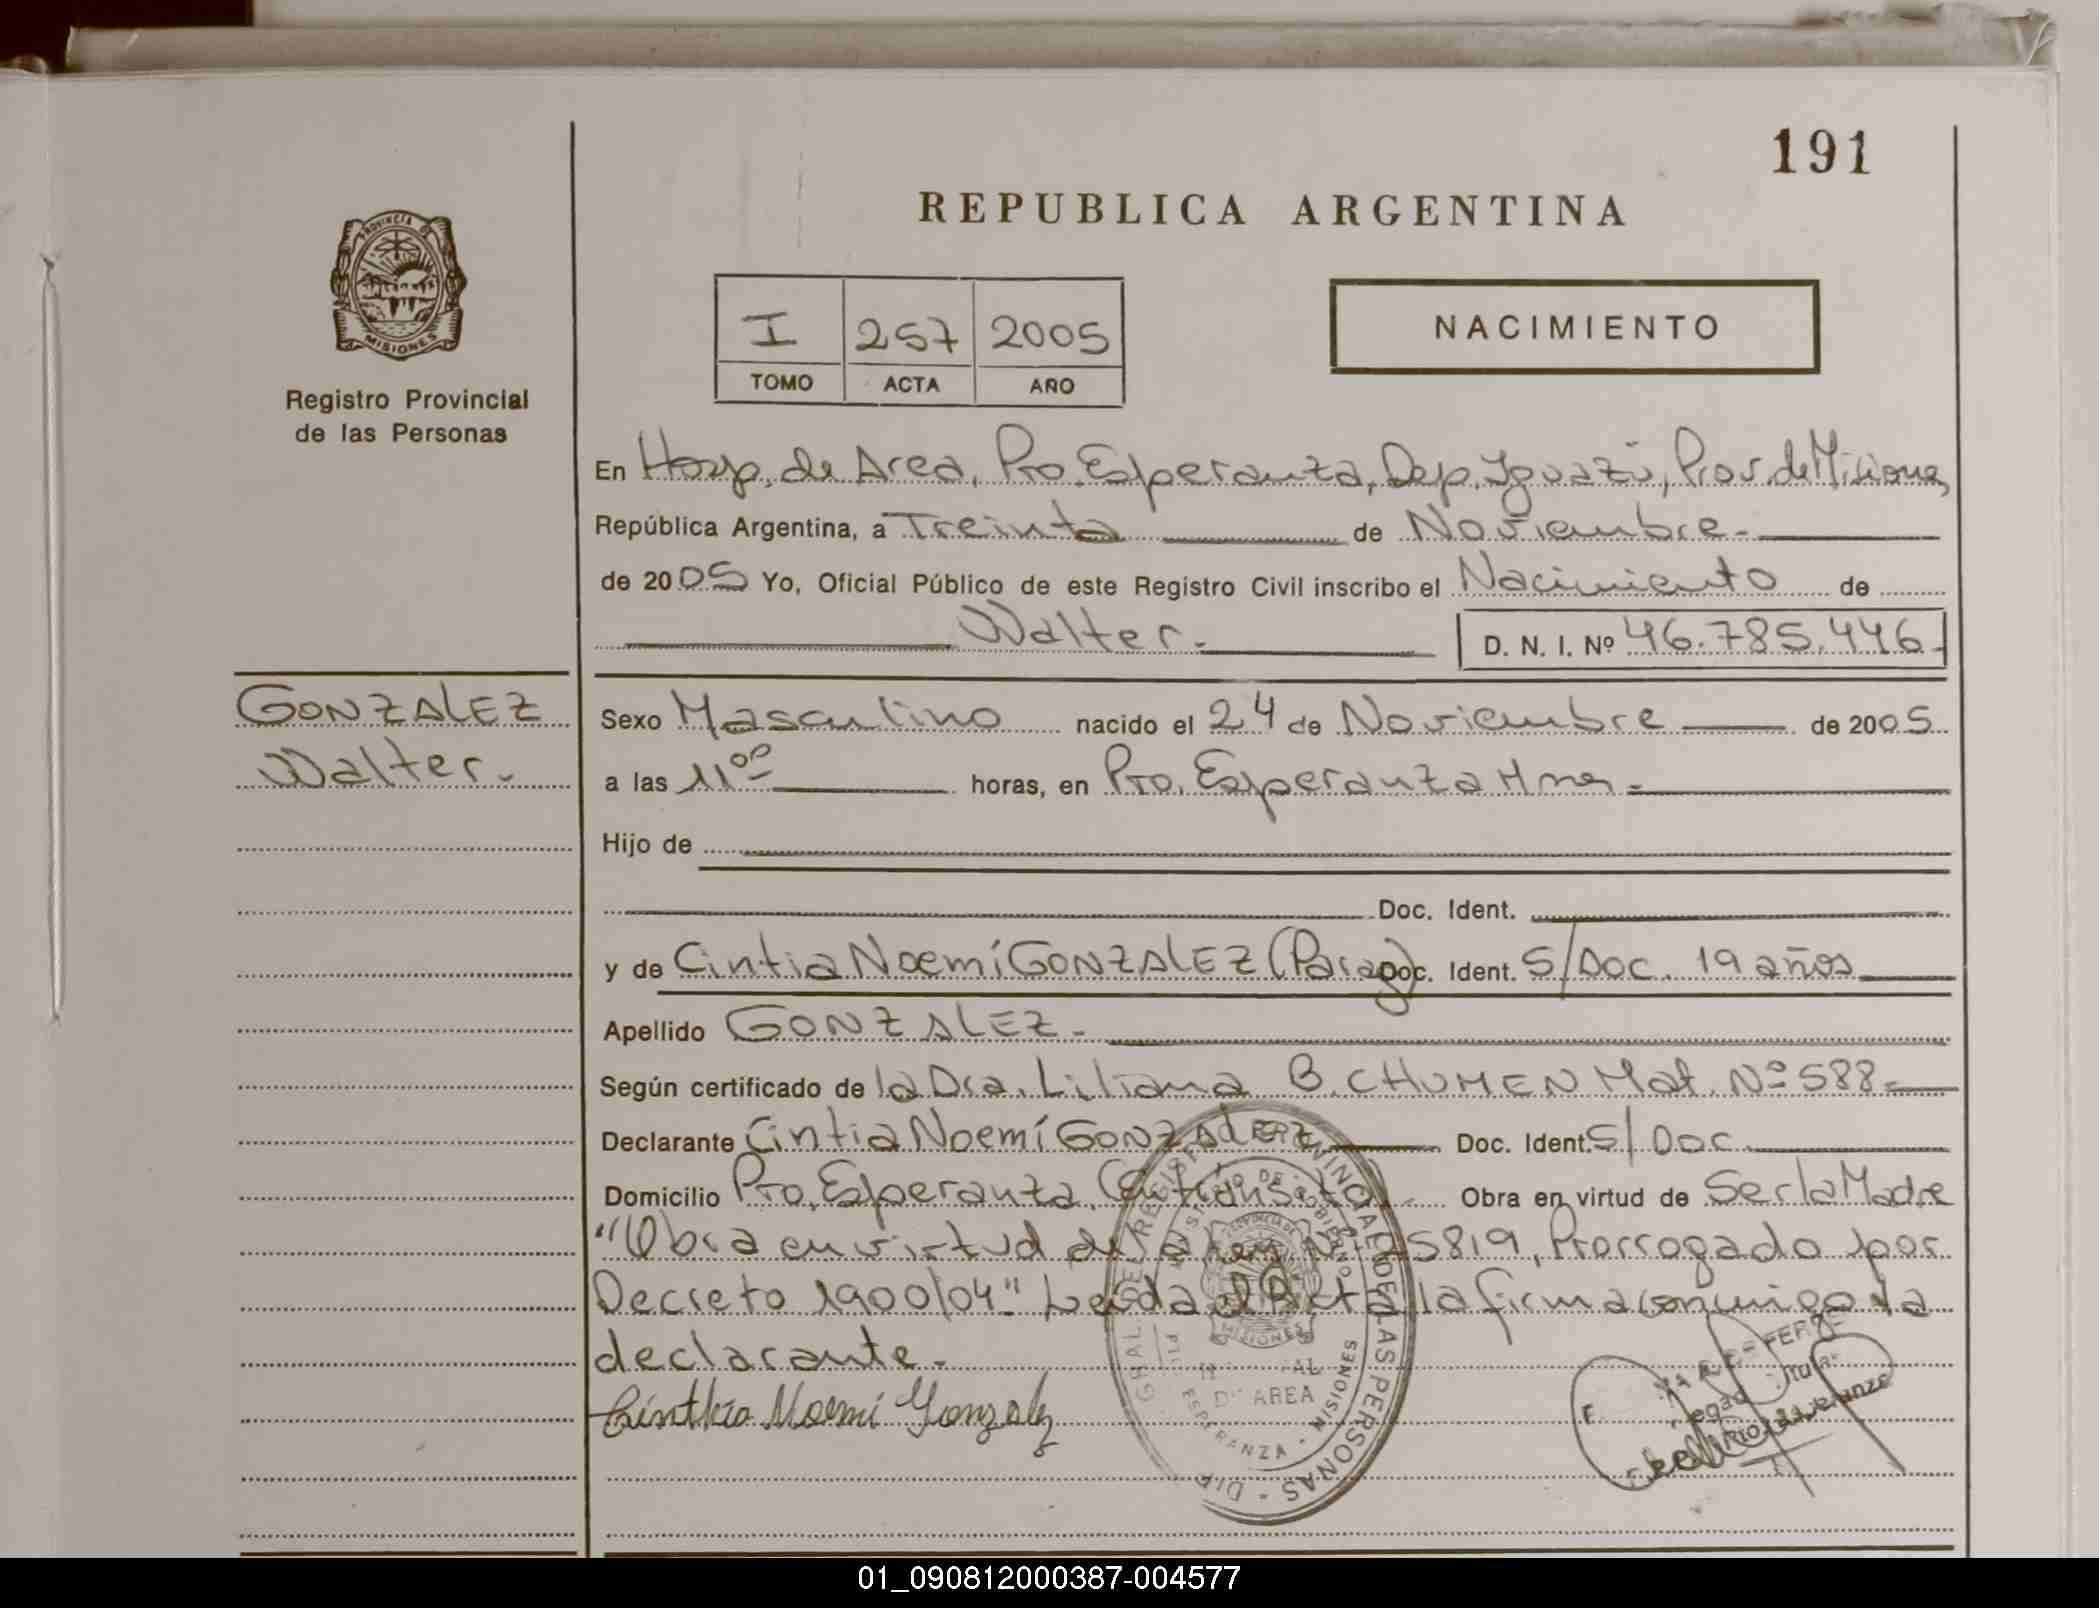 191
REPUBLICA ARGENTINA
PROVINCIA DE
MISIONES
Registro Provincial
de las Personas
I 257 2005
TOMO ACTA AÑO
NACIMIENTO
En Hosp. de Area, Pto. Esperanza, Dep. Iguazú, Prov. de Misiones,
República Argentina, a Treinta de Noviembre.-
de 2005 Yo, Oficial Público de este Registro Civil inscribo el Nacimiento de
Walter.- D. N. I. Nº 46.785.446.-
GONZALEZ
Walter.-
Sexo Masculino nacido el 24 de Noviembre de 2005
a las 11ºº horas, en Pto. Esperanza Mnes.-
Hijo de
Doc. Ident.
y de Cintia Noemí GONZALEZ (Parag) Doc. Ident. S/Doc. 19 años
Apellido GONZALEZ.-
Según certificado de la Dra. Liliana B. CHUMEN Mat. Nº 588.-
Declarante Cintia Noemí GONZALEZ Doc. Ident. S/Doc.
Domicilio Pto. Esperanza (en transito) Obra en virtud de Ser la Madre
"Obra en virtud de la Ley Nº 25819, Prorrogado por
Decreto 1900/04". Leida el Acta la firma conmigo la
declarante.-
Cinthia Noemi Gonzalez
DIR. GRAL. DEL REGISTRO PROVINCIAL DE LAS PERSONAS
MINISTERIO DE GOBIERNO
PROVINCIA DE
MISIONES
D. AREA
ESPERANZA - MISIONES
01_090812000387-004577